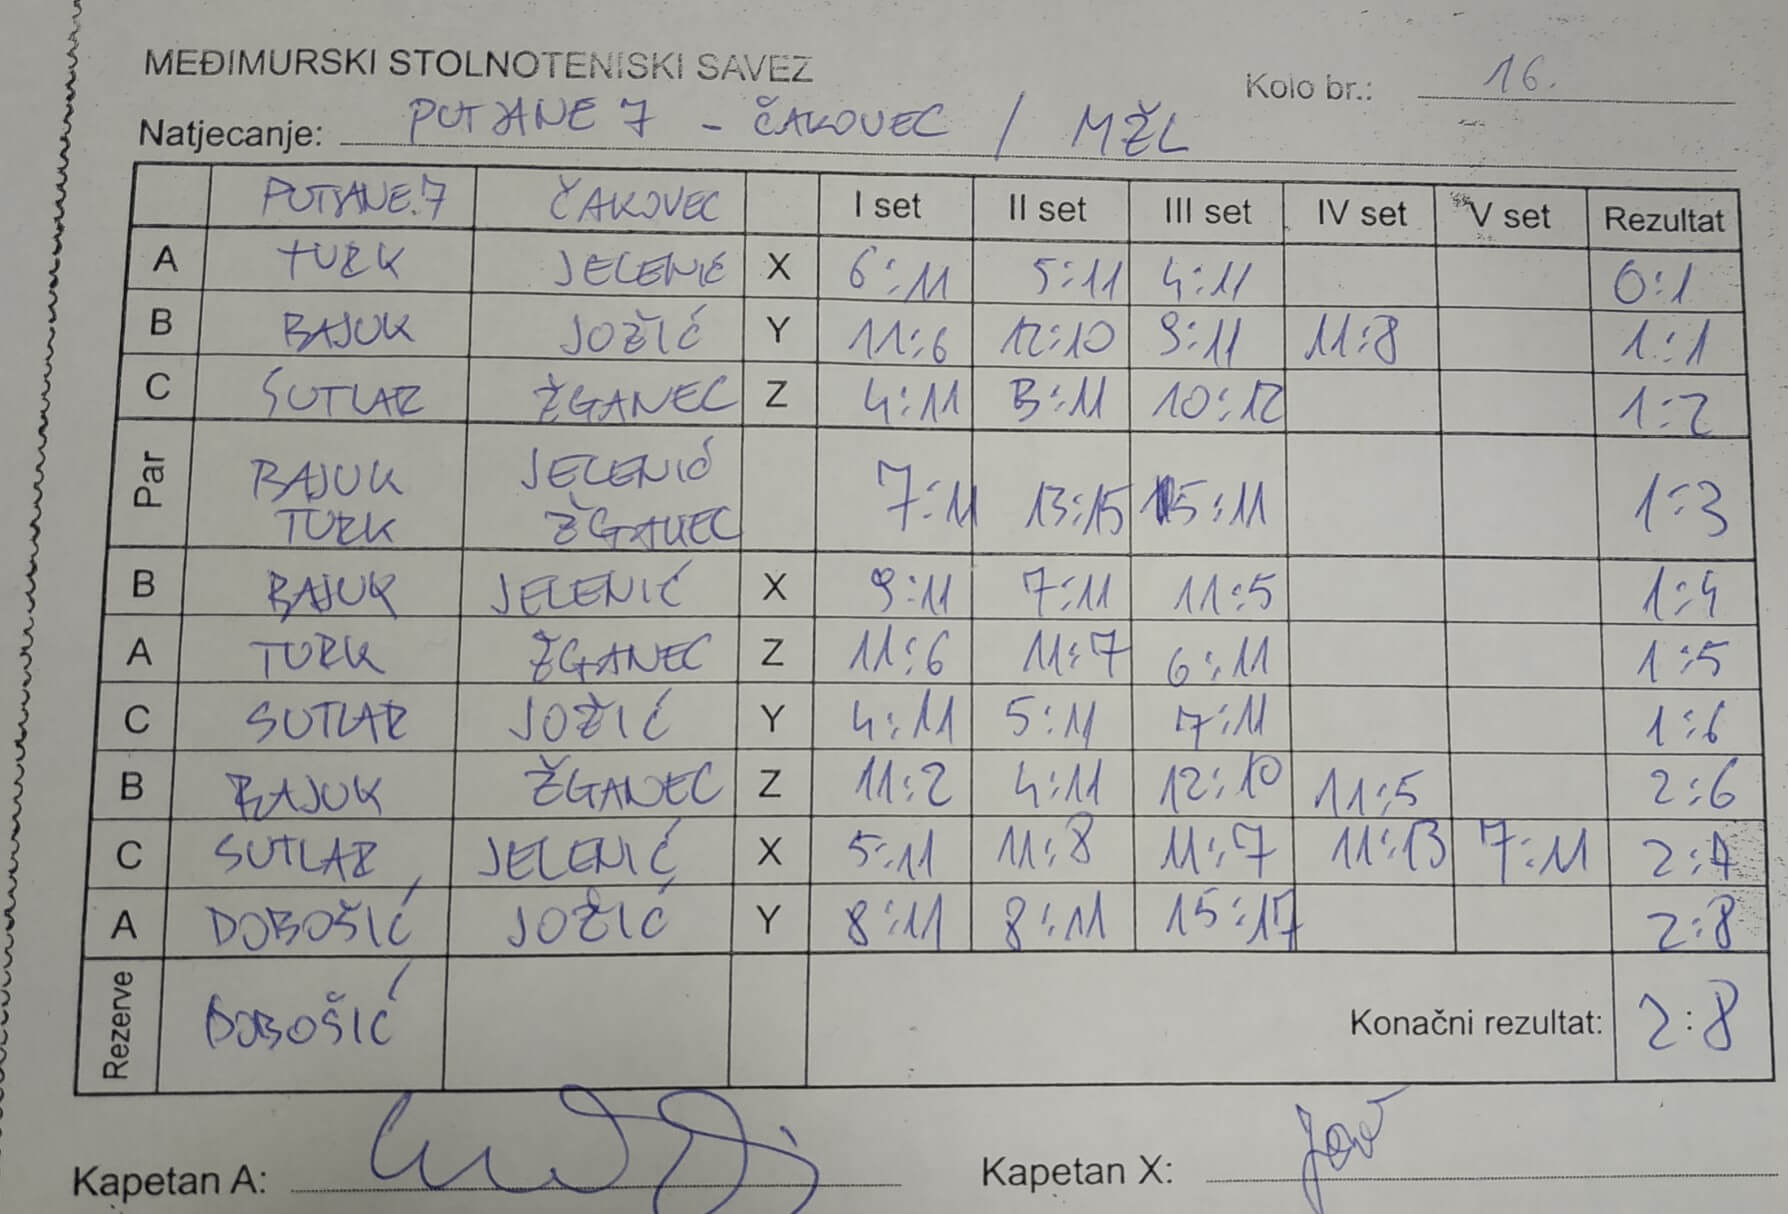 MEĐIMURSKI STOLNOTENISKI SAVEZ
Kolo br.: 16.
Natjecanje: PUTJANE 7 - ČAKOVEC / MŽL
PUTJANE 7 ČAKOVEC I set II set III set IV set V set Rezultat
A TURK JELENIĆ X 6:11 5:11 4:11 0:1
B BAJUK JOŽIĆ Y 11:6 12:10 9:11 11:8 1:1
C SUTLAR ŽGANEC Z 4:11 3:11 10:12 1:2
Par BAJUK JELENIĆ 7:11 13:15 15:11 1:3
TURK ŽGANEC
B BAJUK JELENIĆ X 9:11 7:11 11:5 1:4
A TURK ŽGANEC Z 11:6 11:7 6:11 1:5
C SUTLAR JOŽIĆ Y 4:11 5:11 7:11 1:6
B BAJUK ŽGANEC Z 11:2 4:11 12:10 11:5 2:6
C SUTLAR JELENIĆ X 5:11 11:8 11:7 11:13 7:11 2:7
A DOBOŠIĆ JOŽIĆ Y 8:11 8:11 15:17 2:8
Rezerve DOBOŠIĆ Konačni rezultat: 2:8
Kapetan A: Kapetan X: